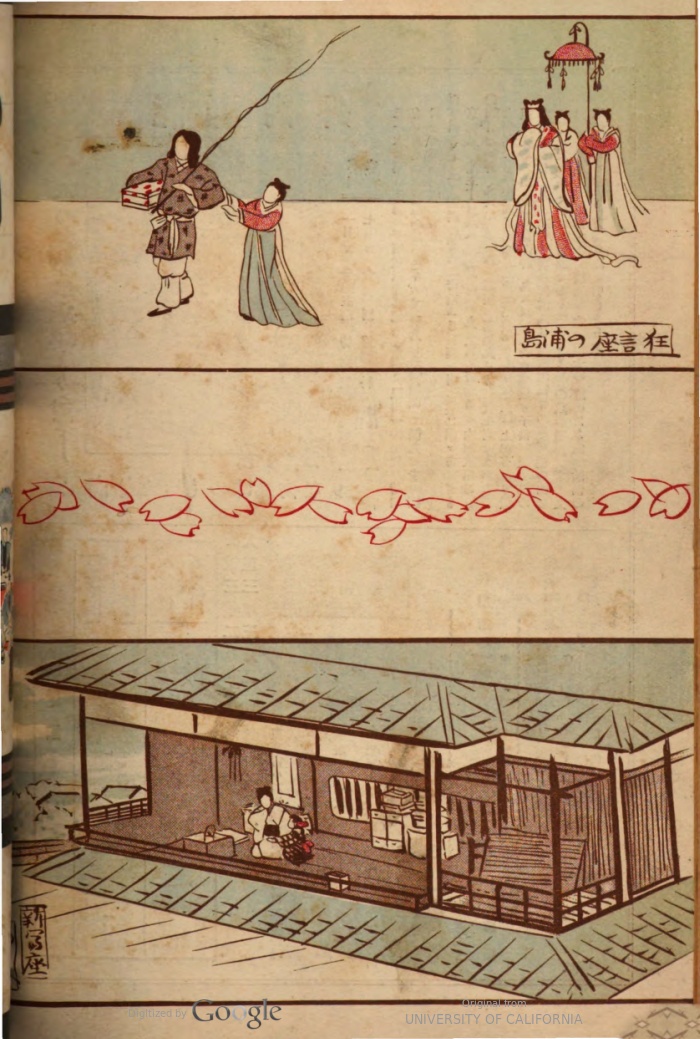 狂言座の浦島
新富座
Digitized by Google
Original from
UNIVERSITY OF CALIFORNIA